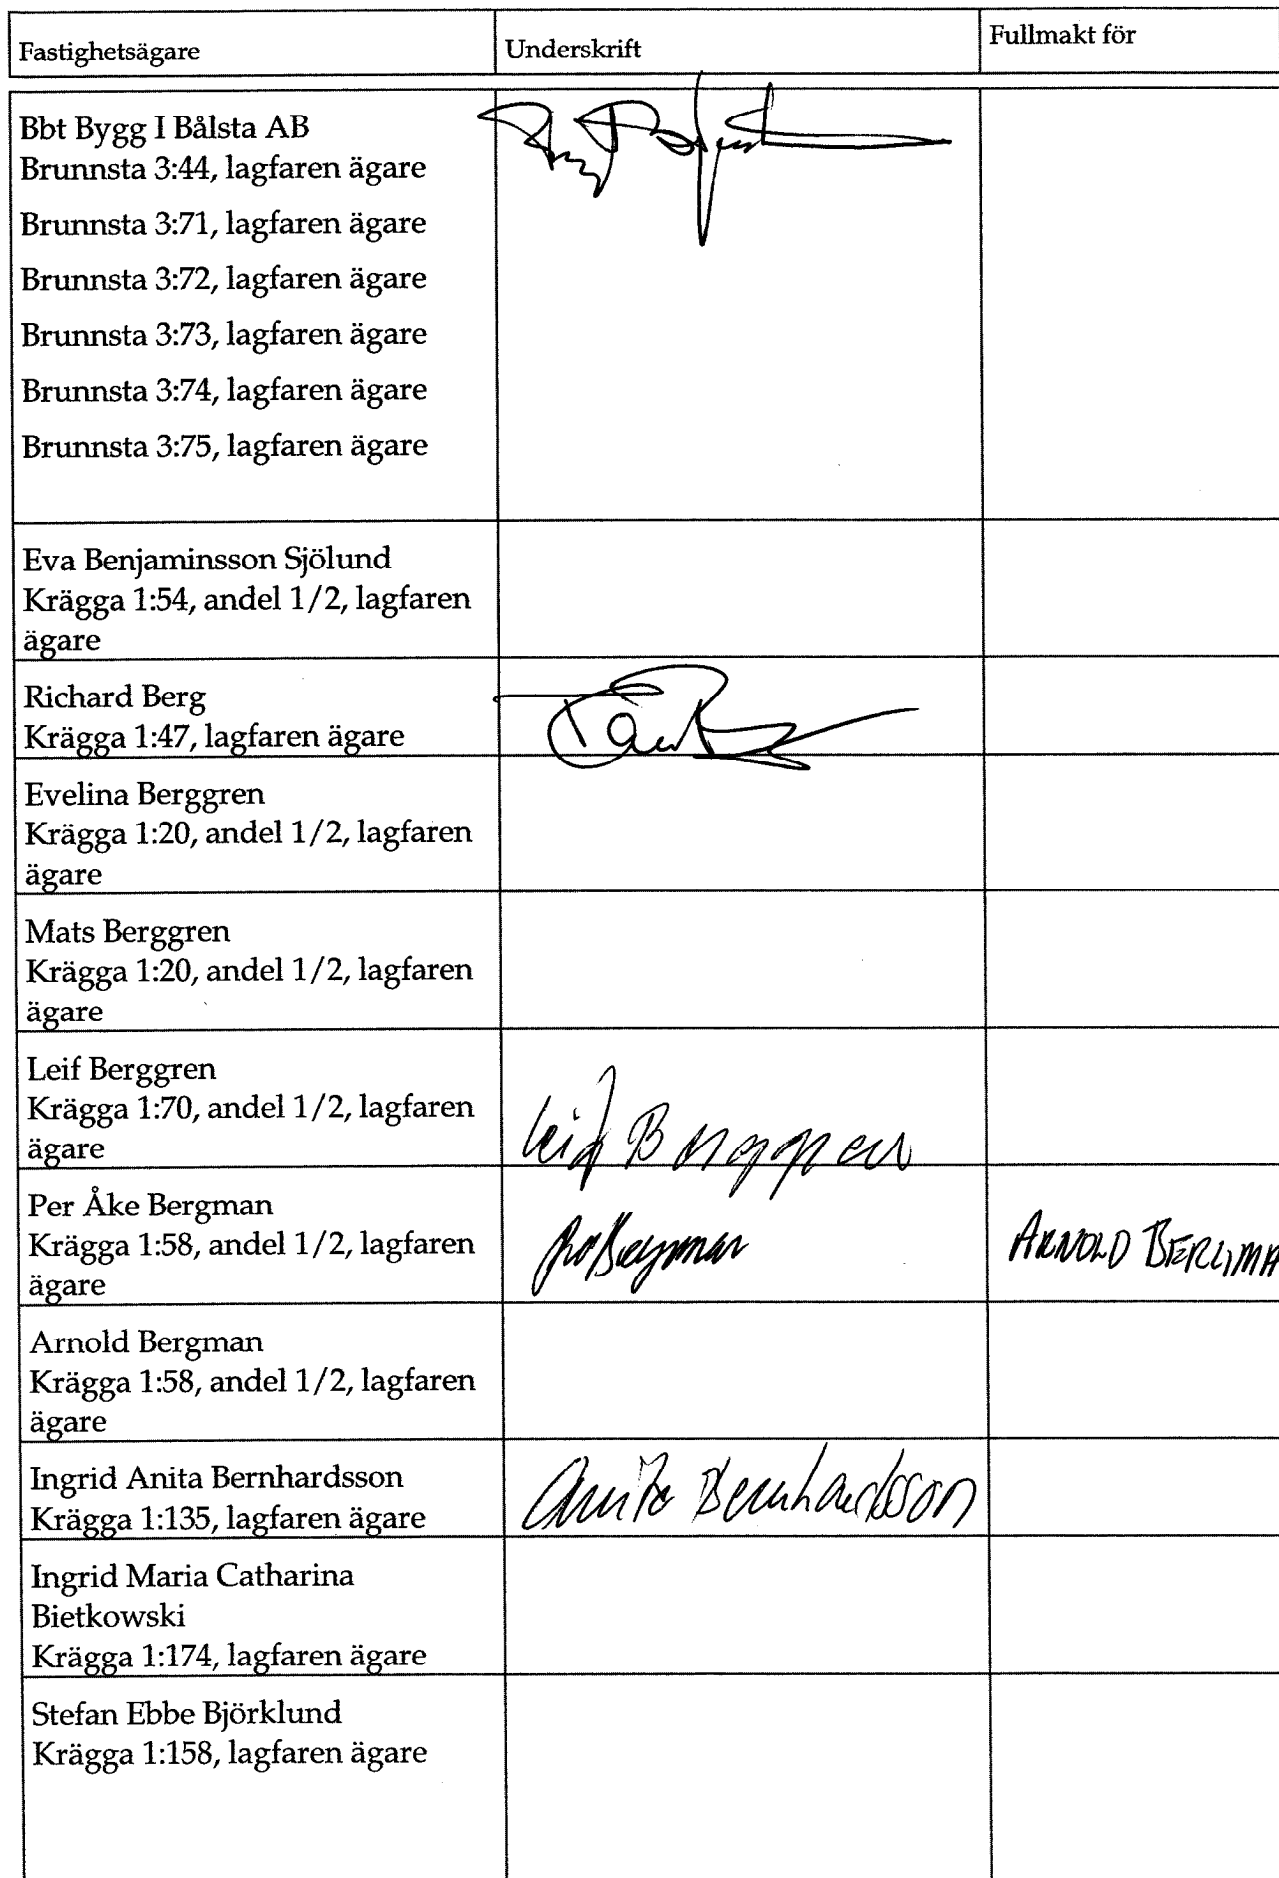 Fastighetsägare Underskrift Fullmakt för
Bbt Bygg I Bålsta AB
Brunnsta 3:44, lagfaren ägare
Brunnsta 3:71, lagfaren ägare
Brunnsta 3:72, lagfaren ägare
Brunnsta 3:73, lagfaren ägare
Brunnsta 3:74, lagfaren ägare
Brunnsta 3:75, lagfaren ägare
Eva Benjaminsson Sjölund
Krägga 1:54, andel 1/2, lagfaren
ägare
Richard Berg
Krägga 1:47, lagfaren ägare
Evelina Berggren
Krägga 1:20, andel 1/2, lagfaren
ägare
Mats Berggren
Krägga 1:20, andel 1/2, lagfaren
ägare
Leif Berggren
Krägga 1:70, andel 1/2, lagfaren
ägare
Leif Berggren
Per Åke Bergman
Krägga 1:58, andel 1/2, lagfaren
ägare
Bergman
ARNOLD
Arnold Bergman
Krägga 1:58, andel 1/2, lagfaren
ägare
Ingrid Anita Bernhardsson
Krägga 1:135, lagfaren ägare
Anita Bernhardsson
Ingrid Maria Catharina
Bietkowski
Krägga 1:174, lagfaren ägare
Stefan Ebbe Björklund
Krägga 1:158, lagfaren ägare